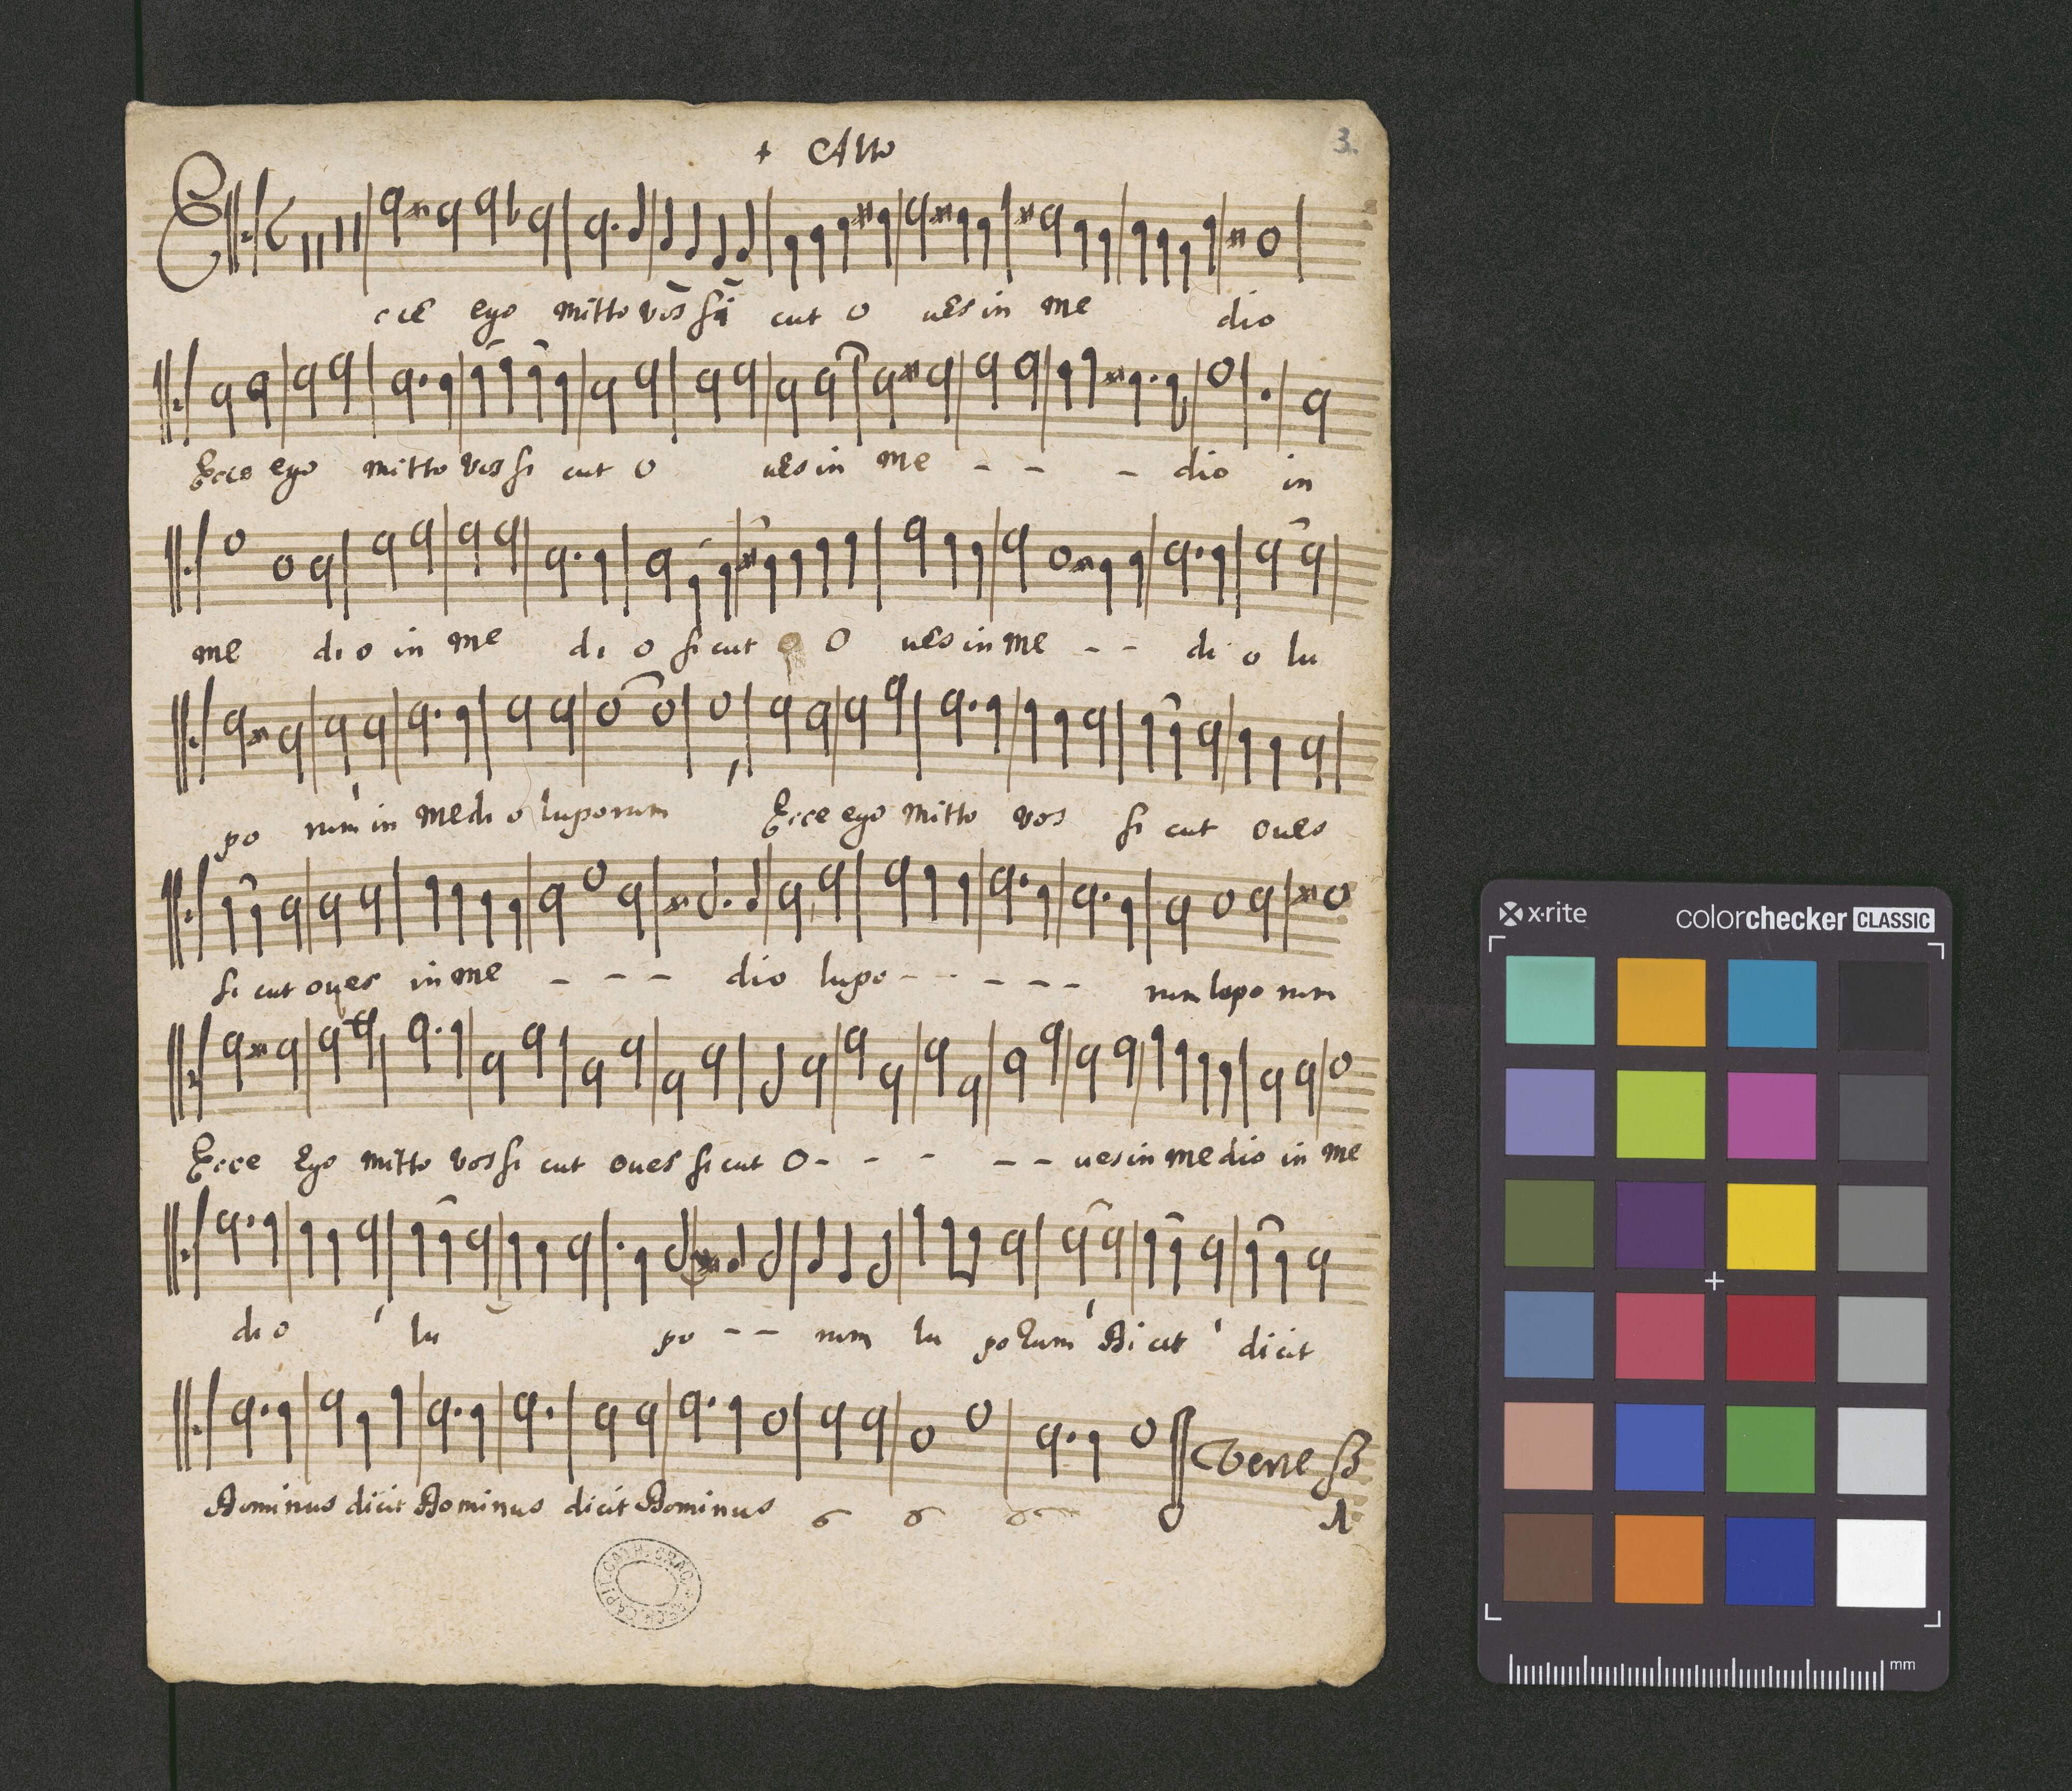 + Alto
3.
Ecce ego mitto vos si cut o ues in me dio
Ecce ego mitto vos si cut o ues in me - - - dio in
me di o in me di o si cut o O ues in me - - di o lu
po rum in medi o luporum Ecce ego mitto vos si cut oues
si cut oues in me - - - dio lupo - - - - - rum lupo rum
Ecce Ego mitto vos si cut oues si cut O - - - - - ues in me dio in me
di o lu po - - rum lu porum Di cit dicit
Dominus dicit Dominus dicit Dominus
x·rite
colorchecker CLASSIC
mm